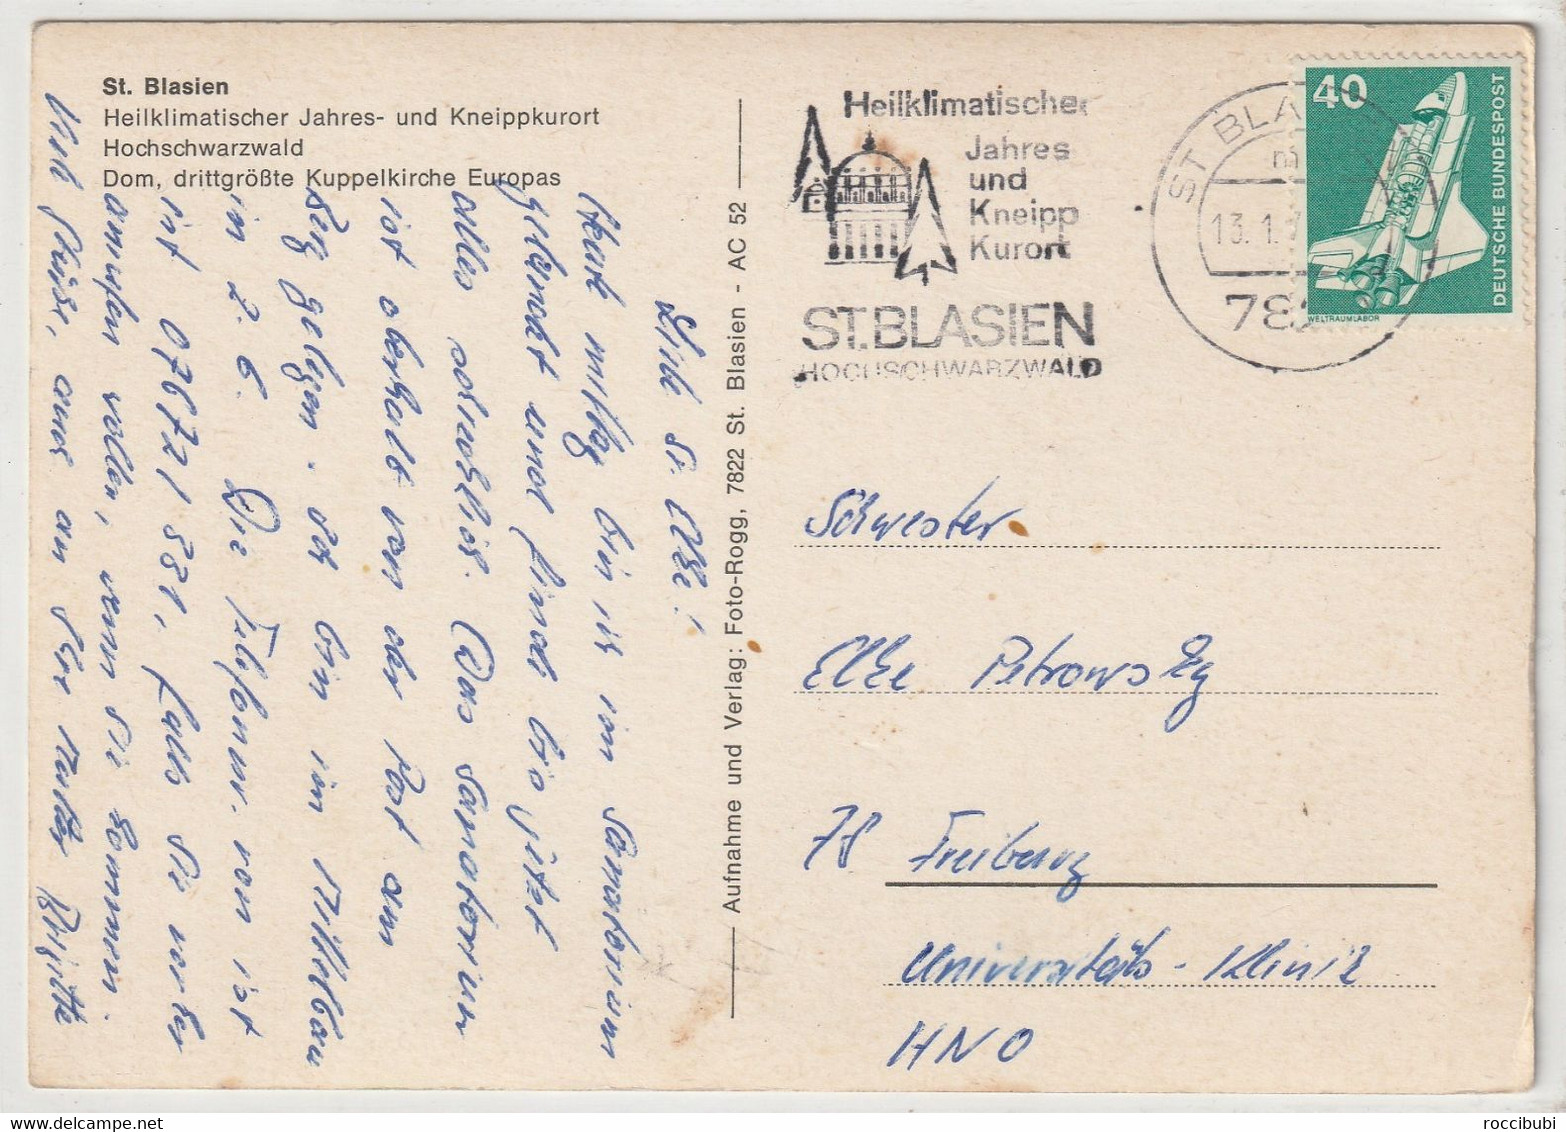 St. Blasien
Heilklimatischer Jahres- und Kneippkurort
Hochschwarzwald
Dom, drittgrößte Kuppelkirche Europas
Aufnahme und Verlag: Foto-Rogg, 7822 St. Blasien - AC 52
Heilklimatischer
Jahres
und
Kneipp
Kurort
ST.BLASIEN
HOCHSCHWARZWALD
ST BLA
13.1.
782
40
DEUTSCHE BUNDESPOST
WELTRAUMLABOR
Liebe Sr. Elke!
Heute mittag bin ich im Sanatorium
gelandet und finde bis jetzt
alles schrecklich. Das Sanatorium
ist oberhalb von der Post am
Berg gelegen. Ich bin im Mittelbau
in 2. 6. Die Telefonnr. von ist
ist 07672/381, falls Sie vorher
anrufen wollen, wenn Sie kommen.
Viele Grüße, auch an Ihre Mutter Brigitte
Schwester
Elke Petrowsky
78 Freiburg
Universitäts-Klinik
HNO
roccibubi